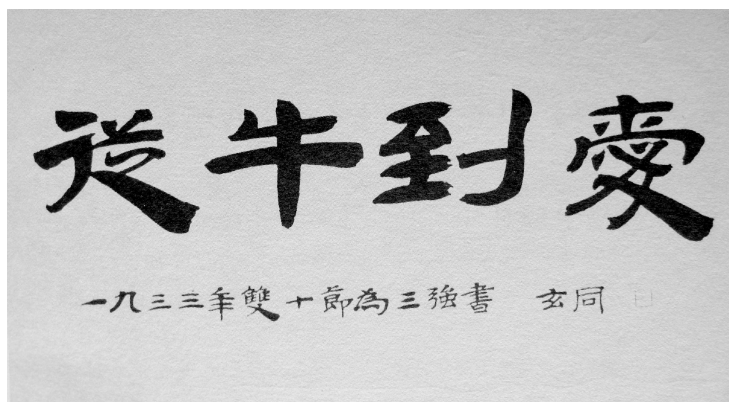 從牛到愛
一九三三年雙十節為三強書 玄同